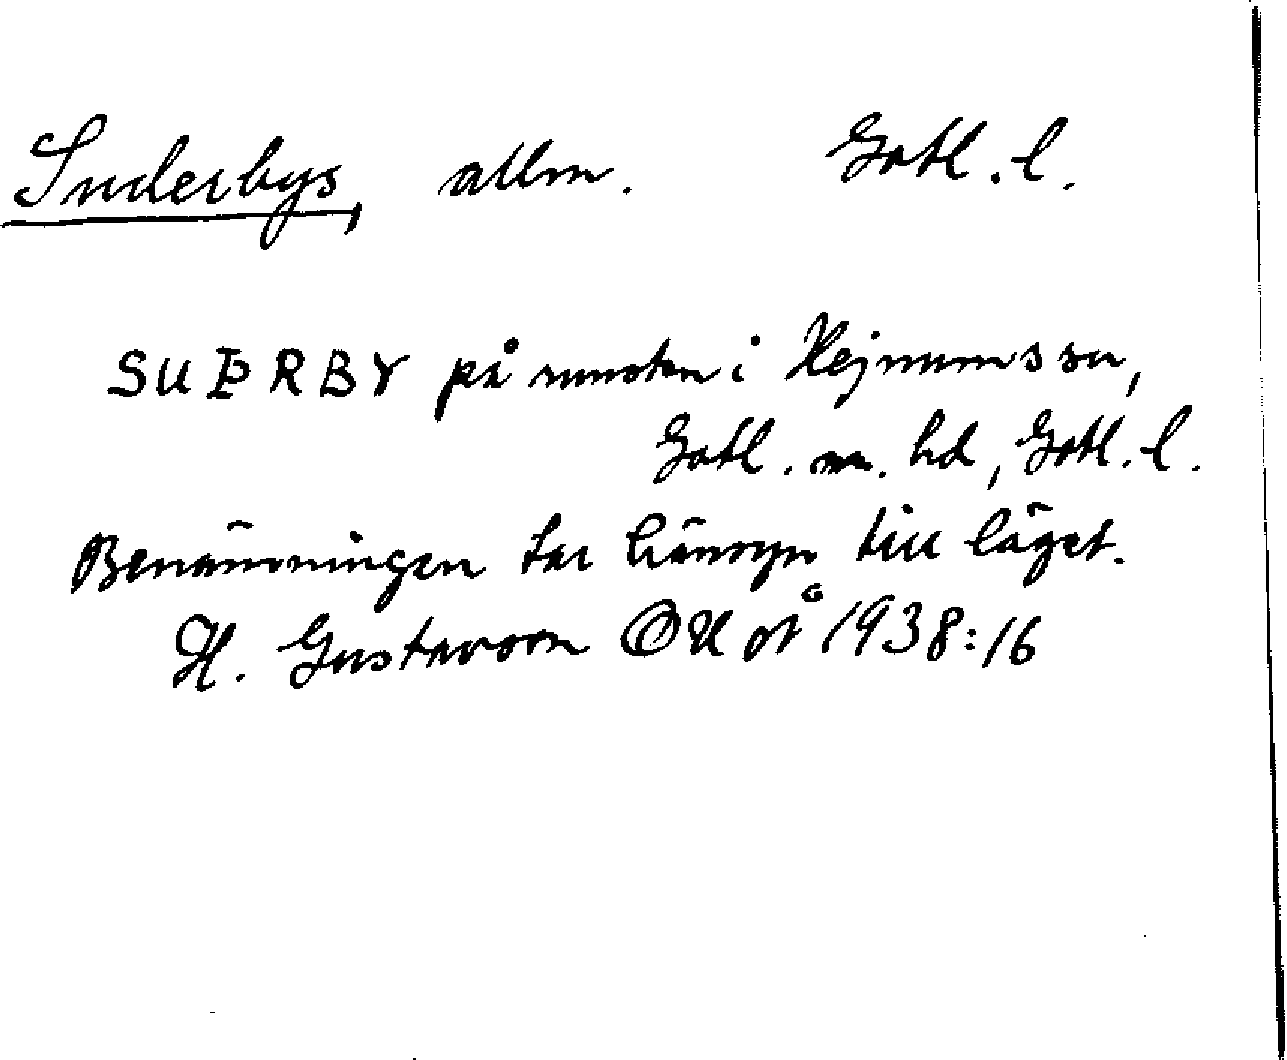 Suderbys, allm. Gotl. l.
SUÞRBY på runsten i Hejnums sn,
Gotl. n. hd, Gotl. l.
Benämningen tar hänsyn till läget.
H. Gustavson OUÅ 1938:16